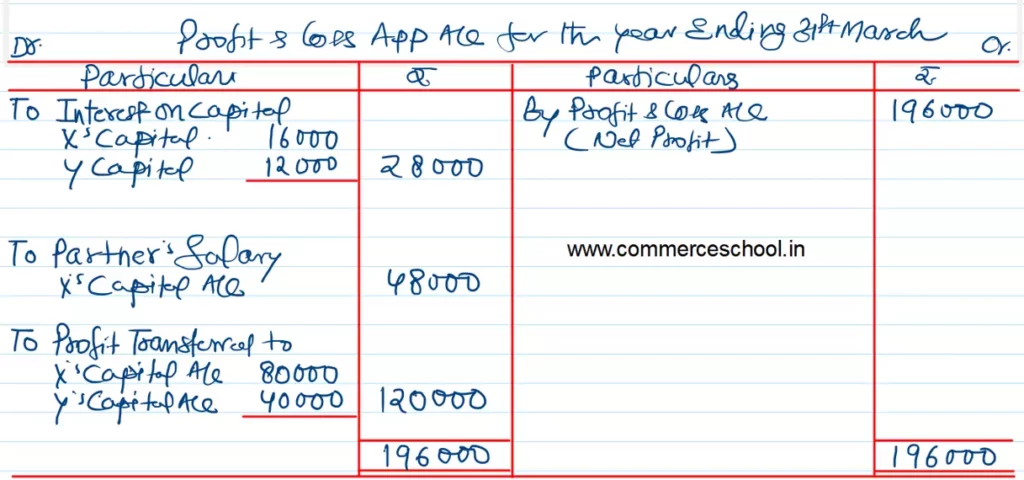 Profit & Loss App A/c for the year Ending 31st March
Dr. Cr.
Particulars ₹ Particulars ₹
To Interest on Capital By Profit & Loss A/c 196000
X's Capital 16000 (Net Profit)
Y Capital 12000 28000
To Partner's Salary
www.commerceschool.in
X's Capital A/c 48000
To Profit Transferred to
X's Capital A/c 80000
Y's Capital A/c 40000 120000
196000 196000